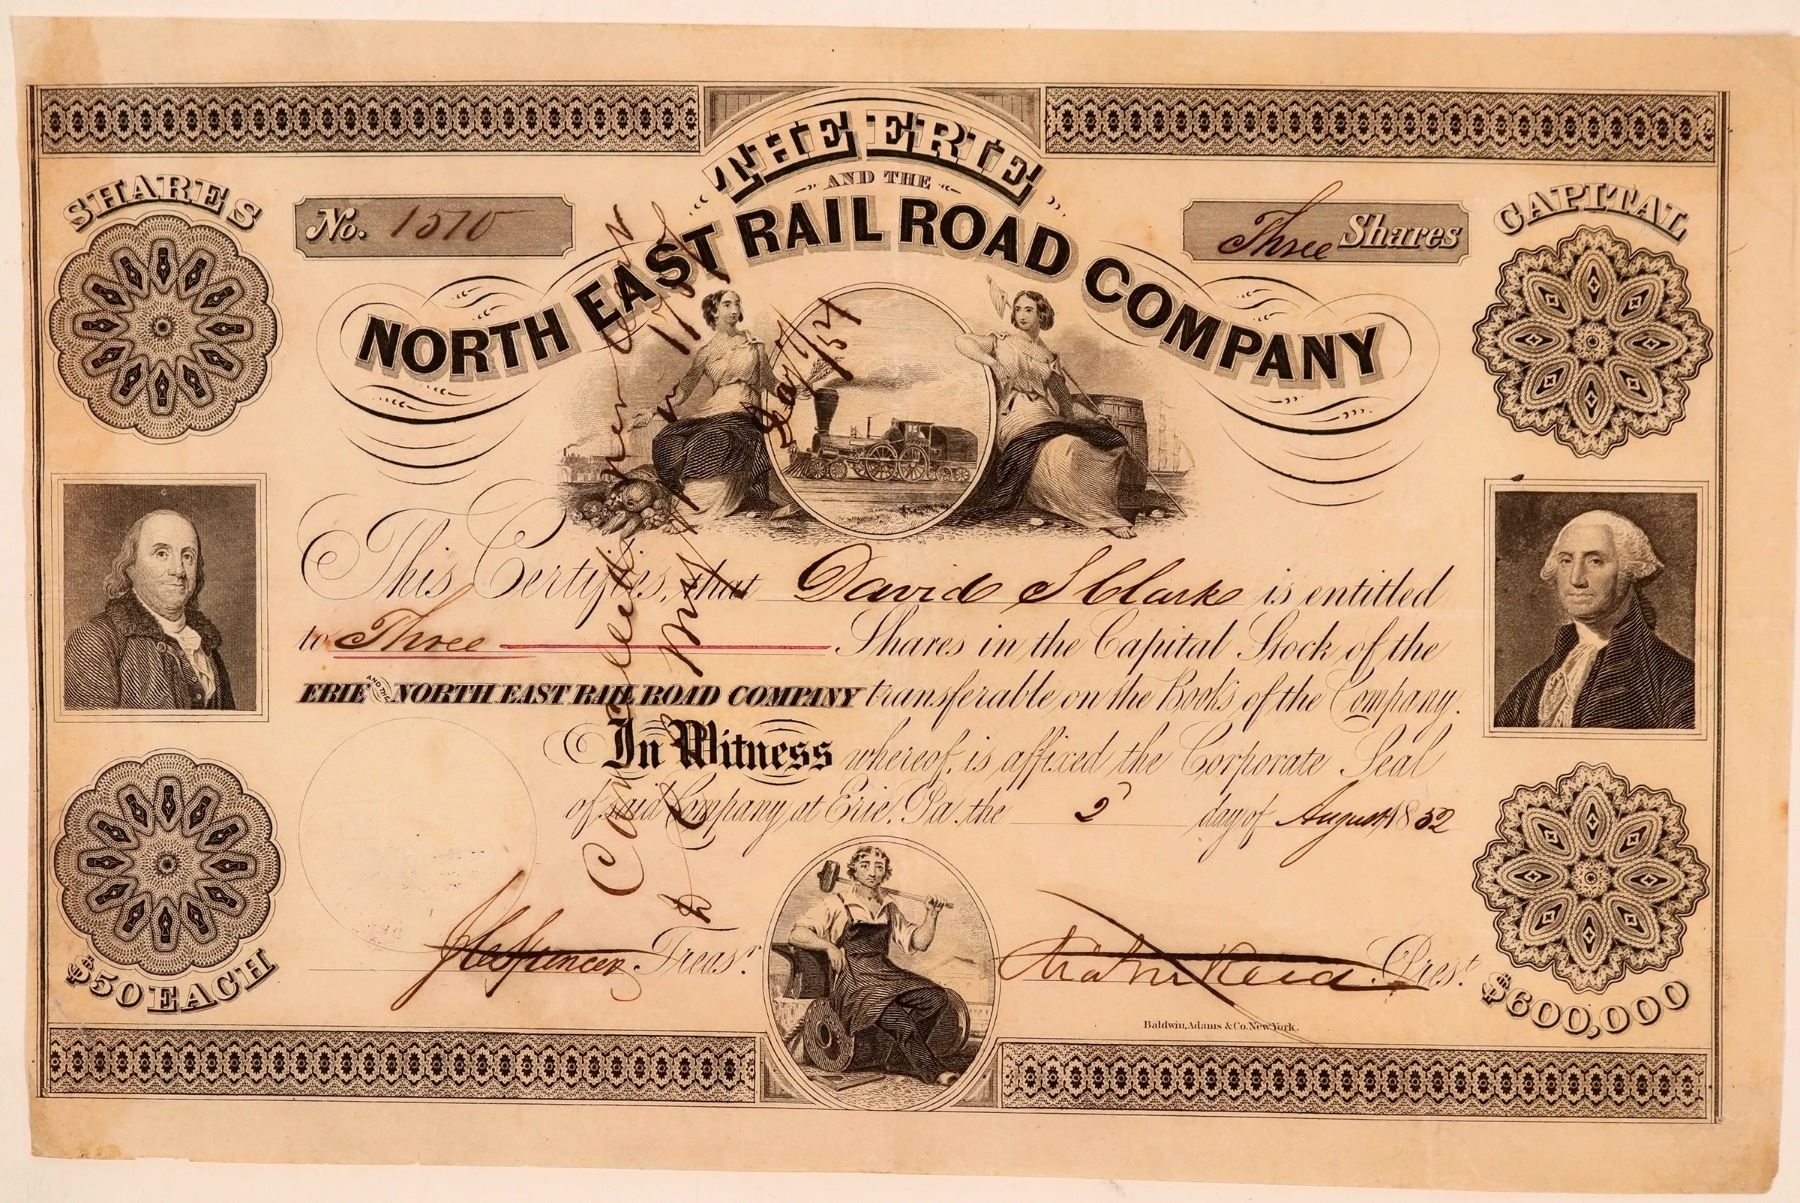 THE ERIE
AND THE
NORTH EAST RAIL ROAD COMPANY
SHARES
No. 1510
Three Shares
CAPITAL
This Certifies, that David S Clark is entitled
to Three Shares in the Capital Stock of the
ERIE AND THE NORTH EAST RAIL ROAD COMPANY transferable on the Books of the Company.
In Witness whereof, is affixed the Corporate Seal
of said Company at Erie, Pa. the 2 day of August 1852
J C Spencer Treasr.
Prest.
$50 EACH
$600,000
Baldwin, Adams & Co. New York.
Cancelled